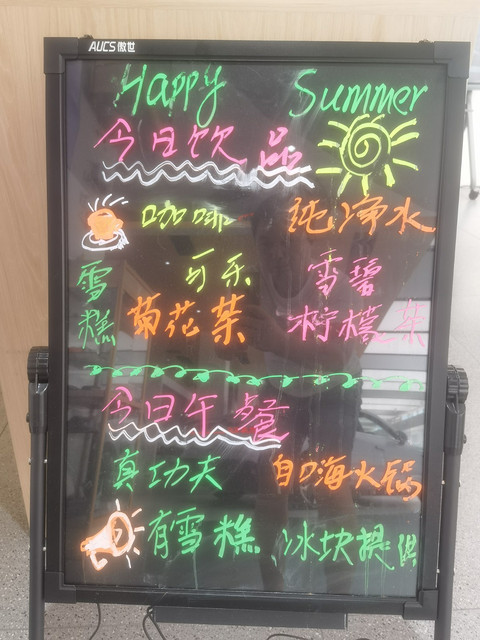 AUCS 傲世
Happy Summer
今日饮品
咖啡 纯净水
雪糕 可乐 雪碧
菊花茶 柠檬茶
今日午餐
真功夫 自嗨火锅
有雪糕 冰块提供